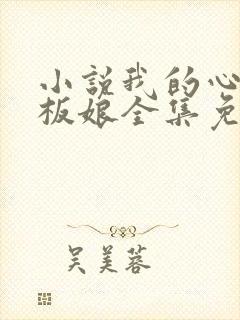 小説我的心
板娘全集免
吴美蓉